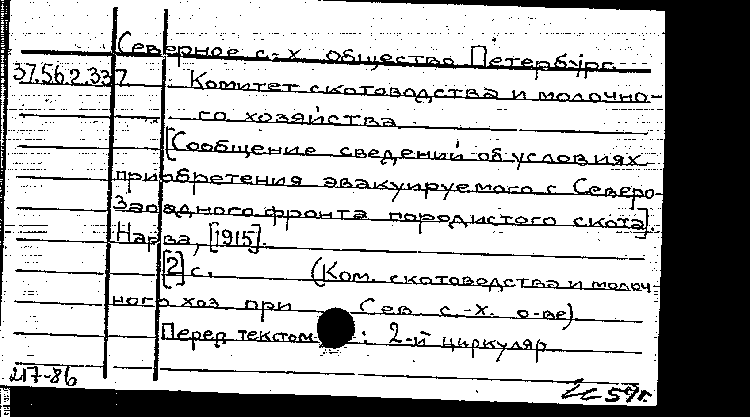 Северное с.-х. общество Петербург.
37.56.2.337 Комитет скотоводства и молочно-
го хозяйства
[Сообщение сведений об условиях
приобретения эвакуируемого с Северо-
Западного фронта породистого скота].
Нарва, [1915].
[2] с. (Ком. скотоводства и молоч-
ного хоз. при Сев. с.-х. о-ве)
Перед текстом: 2-й циркуляр
217-86
57г.